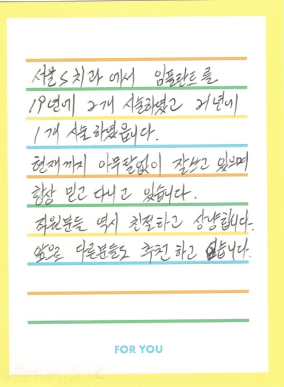 서울S치과에서 임플란트를
19년에 2개 시술하였고 21년에
1개 시술하였읍니다.
현재까지 아무탈없이 잘쓰고 있으며
항상 믿고 다니고 있습니다.
직원분들 역시 친절하고 상냥합니다.
앞으로 다른분들도 추천하고 싶습니다.
FOR YOU